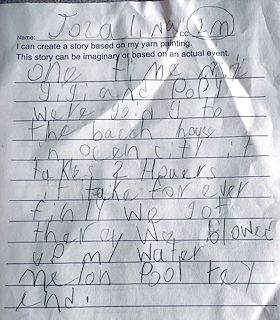 Name:
I can create a story based on my yarn painting.
This story can be imaginary or based on an actual event.
one time me
gigi and PoPy
were going to
the baech house
in ocen city it
takes 2 Houers
it take for ever
finly we got
there we blowed
up my water
melon Pool tey
end.